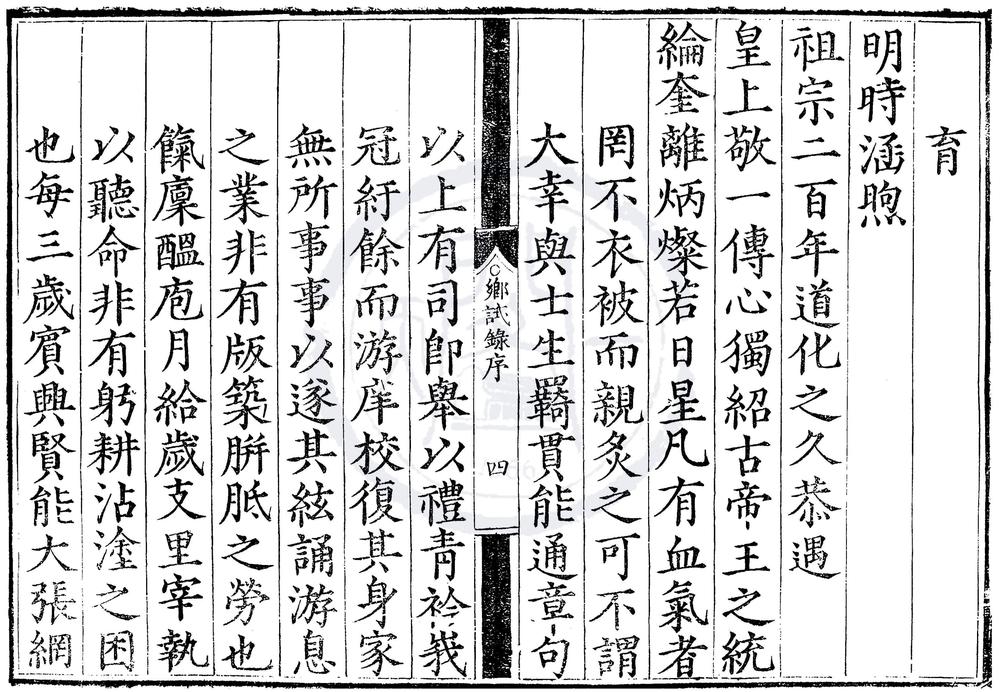 育
明時涵煦
祖宗二百年道化之久恭遇
皇上敬一傳心獨紹古帝王之統
綸奎離炳燦若日星凡有血氣者
罔不衣被而親炙之可不謂
大幸與士生羇貫能通章句
鄉試錄序
四
以上有司卽舉以禮靑衿峩
冠紆餘而游庠校復其身家
無所事事以遂其絃誦游息
之業非有版築胼胝之勞也
餼廩醞庖月給歲支里宰執
以聽命非有躬耕沾塗之困
也每三歲賓興賢能大張網